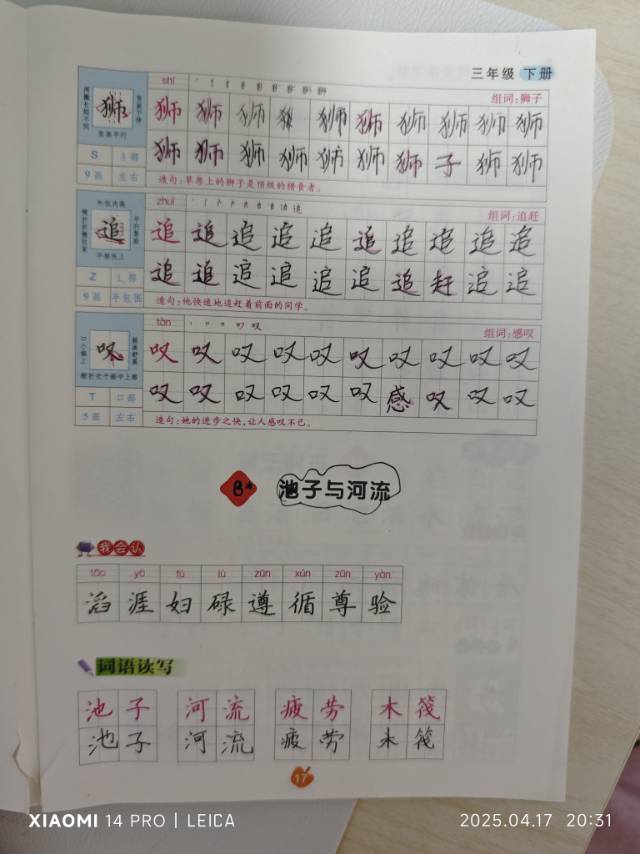 三年级 下册
shī
组词：狮子
狮 狮 狮 狮 狮 狮 狮 狮 狮 狮 狮
S 犭部
狮 狮 狮 狮 狮 狮 狮 子 狮 狮
9画 左右
造句：草原上的狮子是顶级的捕食者。
zhuī
组词：追赶
追 追 追 追 追 追 追 追 追 追 追
Z 辶部
追 追 追 追 追 追 追 赶 追 追
9画 半包围
造句：他快速地追赶着前面的同学。
tàn
组词：感叹
叹 叹 叹 叹 叹 叹 叹 叹 叹 叹 叹
T 口部
叹 叹 叹 叹 叹 叹 感 叹 叹 叹
5画 左右
造句：她的进步之快，让人感叹不已。
8* 池子与河流
我会认
tāo yá fù lù zūn xún zūn yàn
滔 涯 妇 碌 遵 循 尊 验
词语读写
池子 河流 疲劳 木筏
池子 河流 疲劳 木筏
17
XIAOMI 14 PRO | LEICA
2025.04.17 20:31